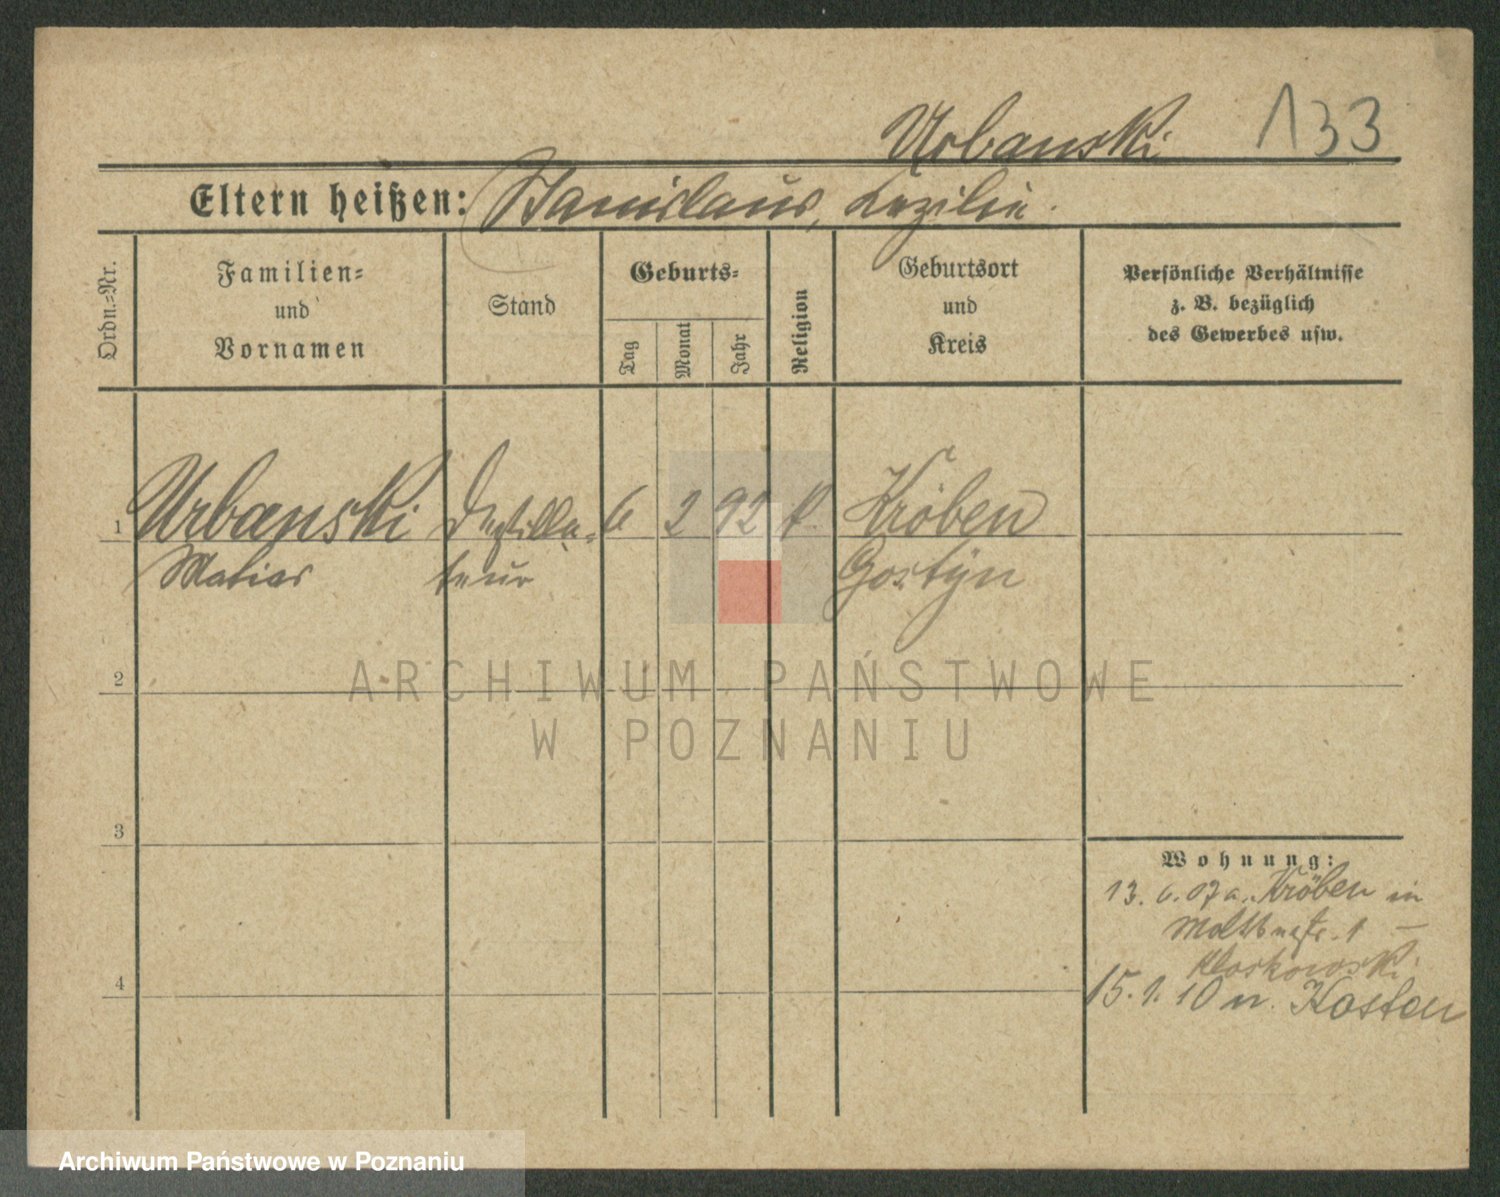 Urbanski 133
Eltern heißen: Stanislaus, Cezilie.
Ordn.=Nr.
Familien=
und
Vornamen
Stand
Geburts=
Tag
Monat
Jahr
Religion
Geburtsort
und
Kreis
Persönliche Verhältnisse
z. B. bezüglich
des Gewerbes usw.
1 Urbanski Destilla= 6 2 92 k. Kröben
teur Gostyn
2
ARCHIWUM PAŃSTWOWE
W POZNANIU
3
Wohnung:
13. 6. 07 a. Kröben in
1 –
4
15. 1. 10 n. Kosten
Archiwum Państwowe w Poznaniu